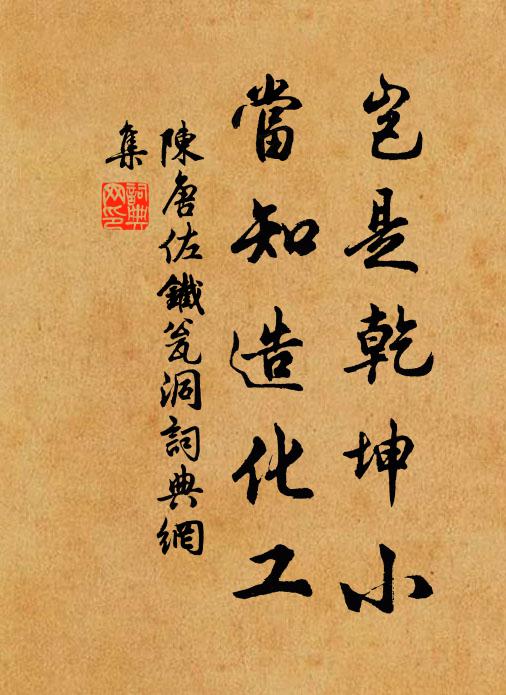 豈是乾坤小
當知造化工
陳唐佐鐵瓮洞詞典網
集
詞典网印